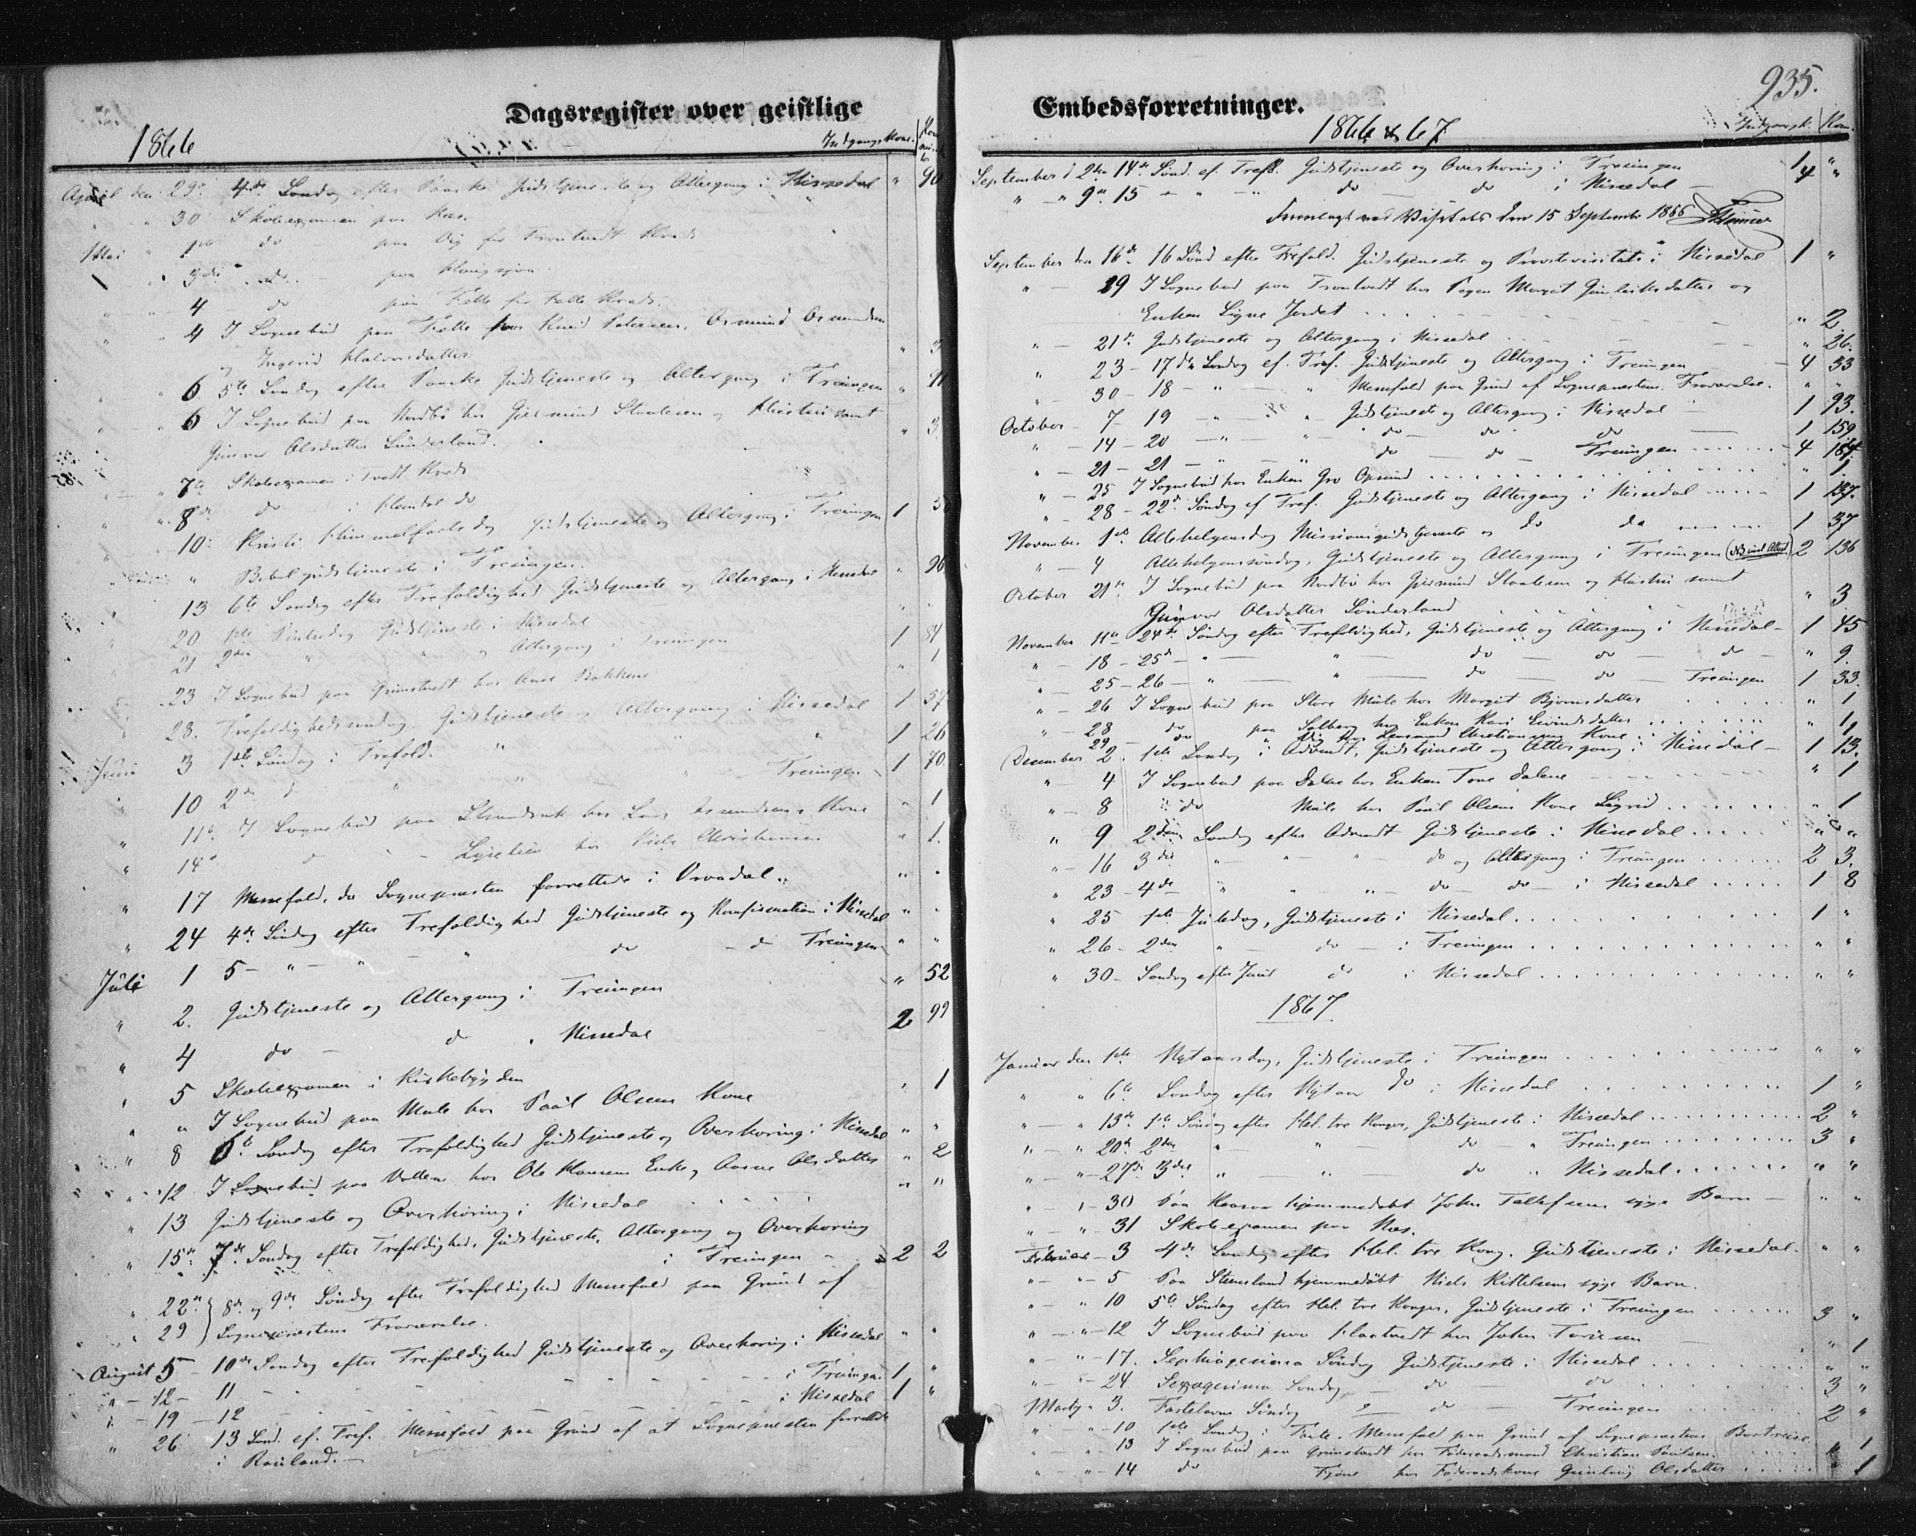 Dagsregister over geistlige
1866
Indgangskone. Kommuni
April den 29de 4de Søndag efter Paaske Gudstjeneste og Altergang i Nissedal " 90
" 30 Skoleexamen paa Næs.
Mai " 1ste do paa Vig for Trontvedt Kreds
" 3die do paa Haugsjaa
" 4 do paa Felle for Felle Kreds.
" 4 I Sognebud paa Felle hos Knud Petersen, Osmund Osmundsen
og Ingerid Halvorsdatter " 3
" 6 5te Søndag efter Paaske Gudstjeneste og Altergang i Treungen " 91
" 6 I Sognebud paa Nordbø hos Gjermund Staalesen og Hustru samt
Gunvor Olsdatter Sünderland. " 3
" 7de Skoleexamen i Tvedt Kreds
" 8de do i Hendal do
" 10 Kristi Himmelfartsdag Gudstjeneste og Altergang i Treungen 1
" Bibelgudstjeneste i Treungen.
" 13 6te Søndag efter Trefoldighed Gudstjeneste og Altergang i Nissedal " 96
20 1ste Pintsedag Gudstjeneste i Nissedal " "
21 2den " " og Altergang i Treungen 1
23 I Sognebud paa Grimstvedt hos Bakkene " 1
" 28. Trefoldighedssøndag, Gudstjeneste og Altergang i Nissedal 1 57
Juni 3 1ste Søndag i Trefold. " " " 1 26
" 10 2den " " Treungen 1 70
" 11te I Sognebud paa hos Lars Asmundsens Kone " 1
" 14de do hos Niels Christensen " 1.
" 17 Messefald, da Sognepræsten forrettede i Hvidesø " "
" 24 4de Søndag efter Trefoldighed Gudstjeneste og Konfirmation i Nissedal " "
Juli 1 5 - " - " - " do - d Treungen " "
" 2. Gudstjeneste og Altergang i Treungen " 52
" 4 do - do " Nissedal 2 99
" 5 Skoleexamen i Kirkebygden
" " I Sognebud paa Mule hos Paul Olsens Kone " 1
" 8 6te Søndag efter Trefoldighed Gudstjeneste og Overhøring i Nissedal " "
" 12 I Sognebud paa hos Ole Hansens Enke, Aasne Olsdatter " 2
" 13 Gudstjeneste og Overhøring i Nissedal " "
" 15de 7de Søndag efter Trefoldighed, Gudstjeneste, Altergang og Overhøring
i Treungen 2 2
" 22de } 8de og 9de Søndag efter Trefoldighed Messefald paa Grund af
" 29 } Sognepræstens Fraværelse.
August 5 - 10de Søndag efter Trefoldighed Gudstjeneste og Overhøring i Nissedal " "
" - 12 - 11 - - - - - i Treungen 1 "
" - 19 - 12 - - - - - i Nissedal 1 "
" 26 13 Sønd. ef. Tref. Messefald paa Grund af at Sognepræsten forrettede
i Rauland.
Embedsforretninger.
935.
1866 & 67
Indgangsk. Kom.
September d. 2den 14de Sønd. ef. Tref. Gudstjeneste og Overhøring i Treungen 1 "
" - " 9de 15 - " - " do - do - i Nissedal 4 "
Fremlagt ved Visitats den 15 September 1866
September den 16de 16 Sønd efter Trefold. Gudstjeneste og Provstevisitats i Nissedal 1 "
" - 19 I Sognebud paa Trontvedt hos Pigen Margit Gunleiksdatter og
Enken Signe Jordet " 2
" - 21de Gudstjeneste og Altergang i Nissedal " 26.
" 23 - 17de Søndag ef. Tref. Gudstjeneste og Altergang i Treungen 4 53
30 - 18 - " " Messefald paa Grund af Sognepræstens Fraværelse. " "
October - 7 - 19 - " " Gudstjeneste og Altergang i Nissedal 1 93.
" - 14 - 20 - " " do - do - do 1 159
" - 21 - 21 - " " do - do Treungen 4 164
" - 25 I Sognebud hos Enken Gro Opsund " 1.
" - 28 - 22de Søndag ef Tref. Gudstjeneste og Altergang i Nissedal 1 137.
November 1ste Allehelgensdag Missionsgudstjeneste og do do 1 37
" - 4 Allehelgenssøndag, Gudstjeneste og Altergang i Treungen 2 136
October 21de I Sognebud paa Nordbø hos Gjermund Staalesen og Hustru samt
Gunvor Olsdatter Sünderland " 3
November 11te 24de Søndag efter Trefoldighed, Gudstjeneste og Altergang i Nissedal 1 45
" - 18 - 25de " " do - do - do " 9.
" - 25 - 26 - " " do do Treungen 1 33
" - 26 I Sognebud paa Store Mule hos Margit Bjørnsdatter " 1
" - 28 do paa Solberg hos Enken Kari Eivindsdatter " 1
29 do " Vig hos Christiansens Kone 1
December 2. 1ste Søndag i Advent, Gudstjeneste og Altergang i Nissedal 1 13.
" - 4 I Sognebud paa Dalene hos Enken Tone Dalene " 1
" - 8 do Mule hos Paul Olsens Kone Sigrid " 1
" 9 2den Søndag efter Advendt Gudstjeneste i Nissedal " "
" - 16 3die " " " do og Altergang i Treungen 2 3.
" 23 - 4de " " " do - do - i Nissedal 1 8
" 25 1ste Juledag, Gudstjeneste i Nissedal 1 "
" 26 - 2den " do - i Treungen " "
" 30 - Søndag efter Juul do i Nissedal " "
1867
Januar den 1ste Nytaarsdag, Gudstjeneste i Treungen " "
" " 6te Søndag efter Nytaar do i Nissedal 1 "
" " 13de 1ste Søndag efter Hel. tre Konger, Gudstjeneste i Nissedal 2 "
" - " 20de 2den " " do " Treungen 3 "
" - " 27de 3die " " do " Nissedal
" 30 Paa hjemmedøbt John Tallefsens syge Barn " "
" " - 31 Skoleexamen paa Næs.
Februar - 3 4de Søndag efter Hel. tre Kong. Gudstjeneste i Nissedal " "
" - " - 5 Paa Steensland hjemmedøbt Niels Kittelsens syge Barn.
" - " 10 5te Søndag efter Hel. tre Konger, Gudstjeneste i Treungen 3 "
" - " - 12 I Sognebud paa Haatvedt hos John " 1
" - " - 17. Septuagesima Søndag Gudstjeneste i Nissedal " "
" - " - 24 Sexagesima Søndag - do - do 3 "
Marts - " 3. Fastelavns Søndag do - Treungen 2 "
" - " - 10 1ste Søndag i Faste. Messefald paa Grund af Sognepræstens Bortreise.
" - " 13 I Sognebud paa Grimstvedt hos Føderaadsmand Christian Paulsen. " 1
" - " - 14 do Fjone hos Føderaadskone Gunlaug Olsdatter " 1